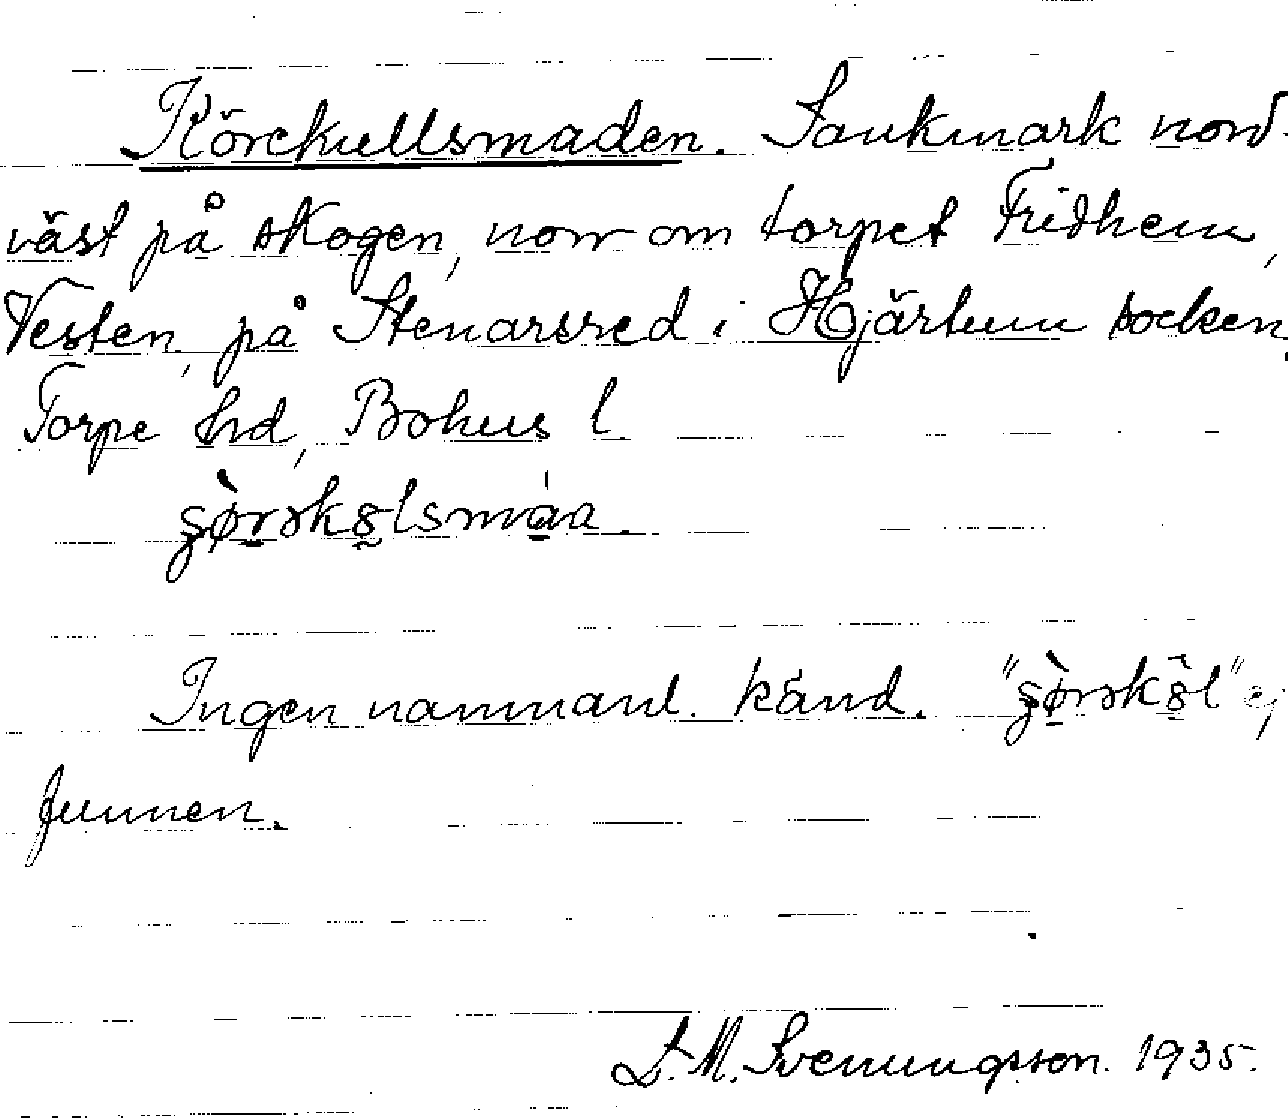 Körekullsmaden. Sankmark nord-
väst på skogen, norr om torpet Fridhem,
Vesten, på Stenarsred i Hjärtum socken,
Torpe hd, Bohus l.
Ingen namnanl. känd. ej
funnen.
D. M. Svenungsson. 1935.